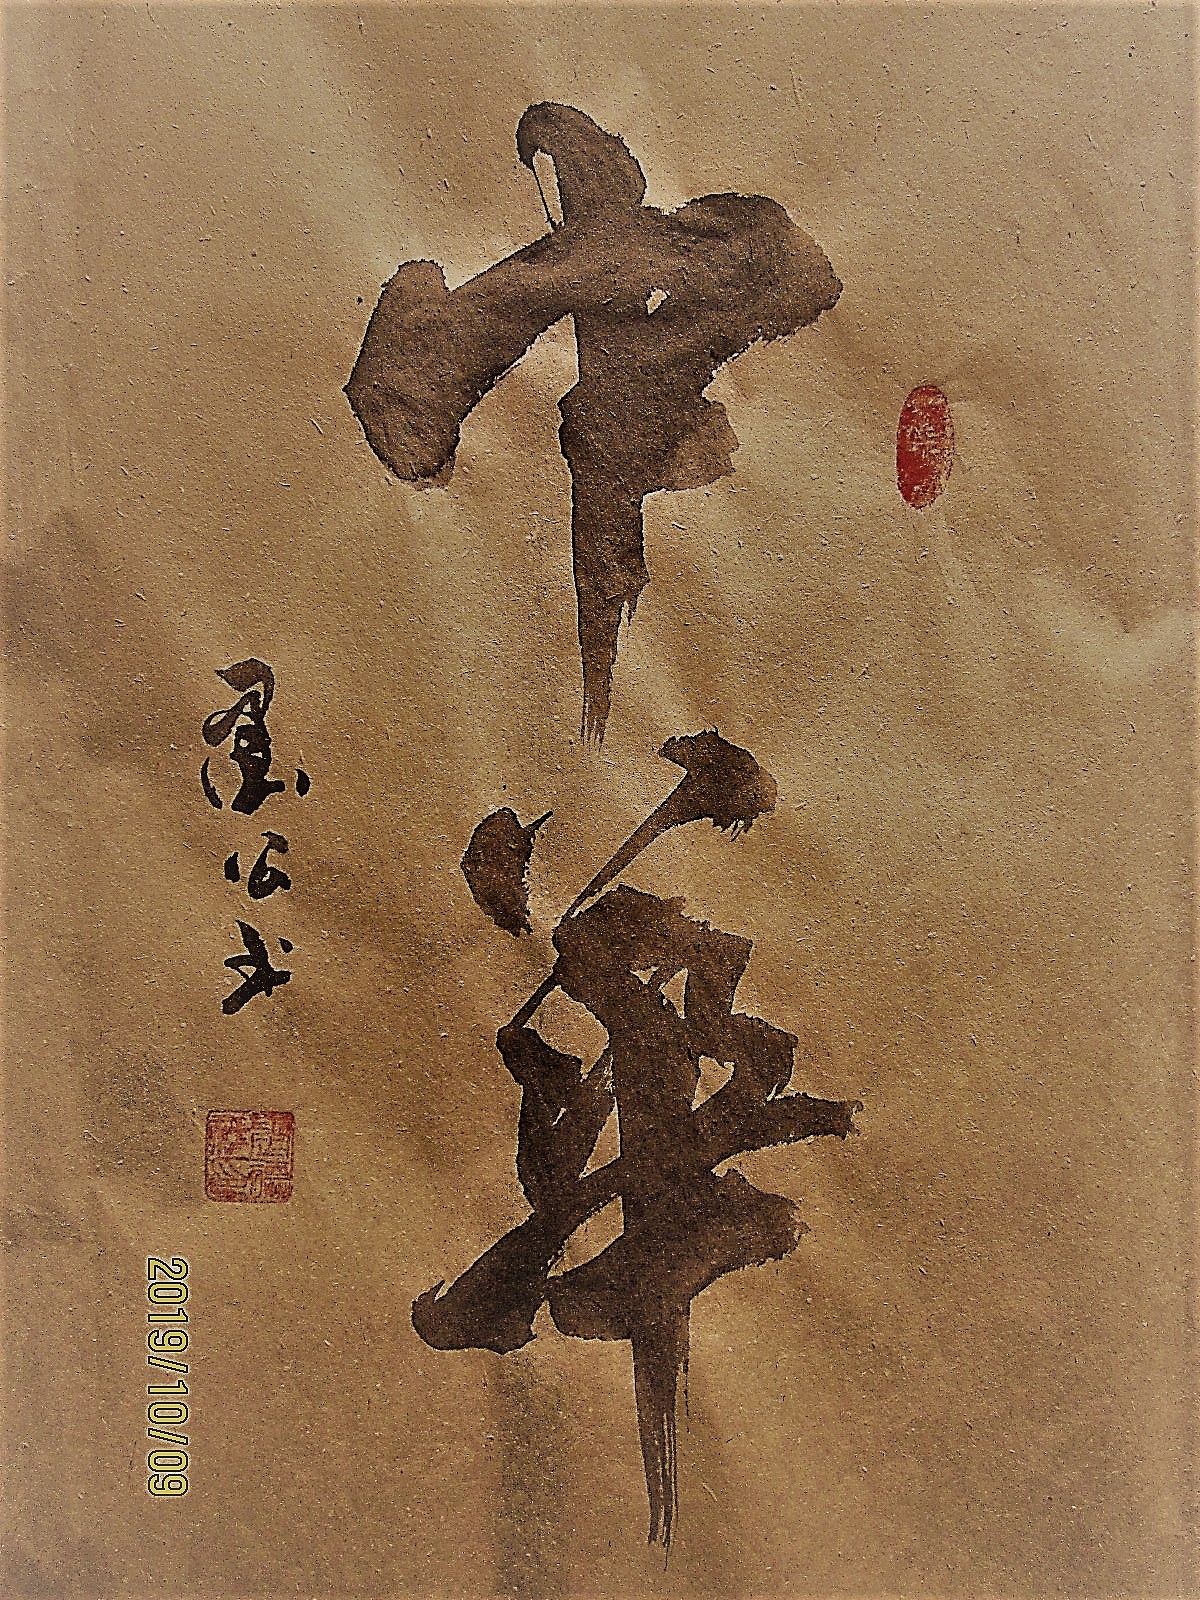 中華
墨公书
2019/10/09